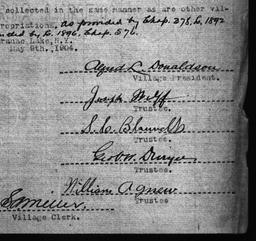 collected in the same manner as are other vil-
ropriations, as provided by Chap. 275, L. 1892
nded by L. 1896, Chap. 576.
aranac Lake, N.Y.
May 9th., 1904.
Alfred L. Donaldson
Village President.
Joseph Wolff
Trustee.
Trustee.
Geo. W. Dwyer
Trustee.
William Agnew
Trustee
S. Miller.
Village Clerk.